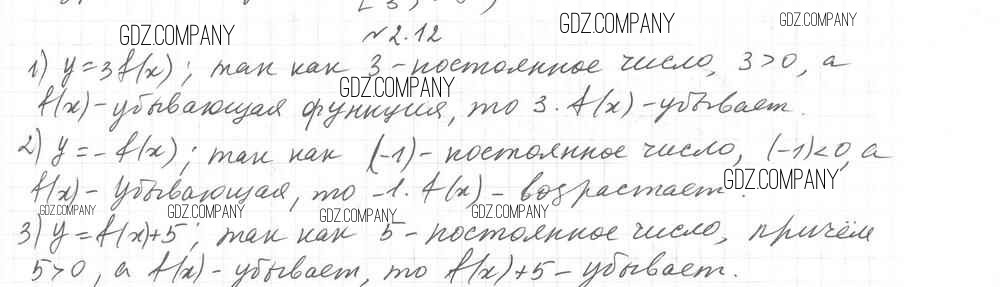 GDZ.COMPANY GDZ.COMPANY GDZ.COMPANY
№2.12
1) y=3f(x); так как 3-постоянное число, 3>0, а
GDZ.COMPANY
f(x)-убывающая функция, то 3·f(x)-убывает.
2) y=-f(x); так как (-1)-постоянное число, (-1)<0, а
f(x)-убывающая, то -1·f(x)-возрастает.
GDZ.COMPANY
GDZ.COMPANY GDZ.COMPANY GDZ.COMPANY GDZ.COMPANY
3) y=f(x)+5; так как 5-постоянное число, причём
5>0, а f(x)-убывает, то f(x)+5-убывает.